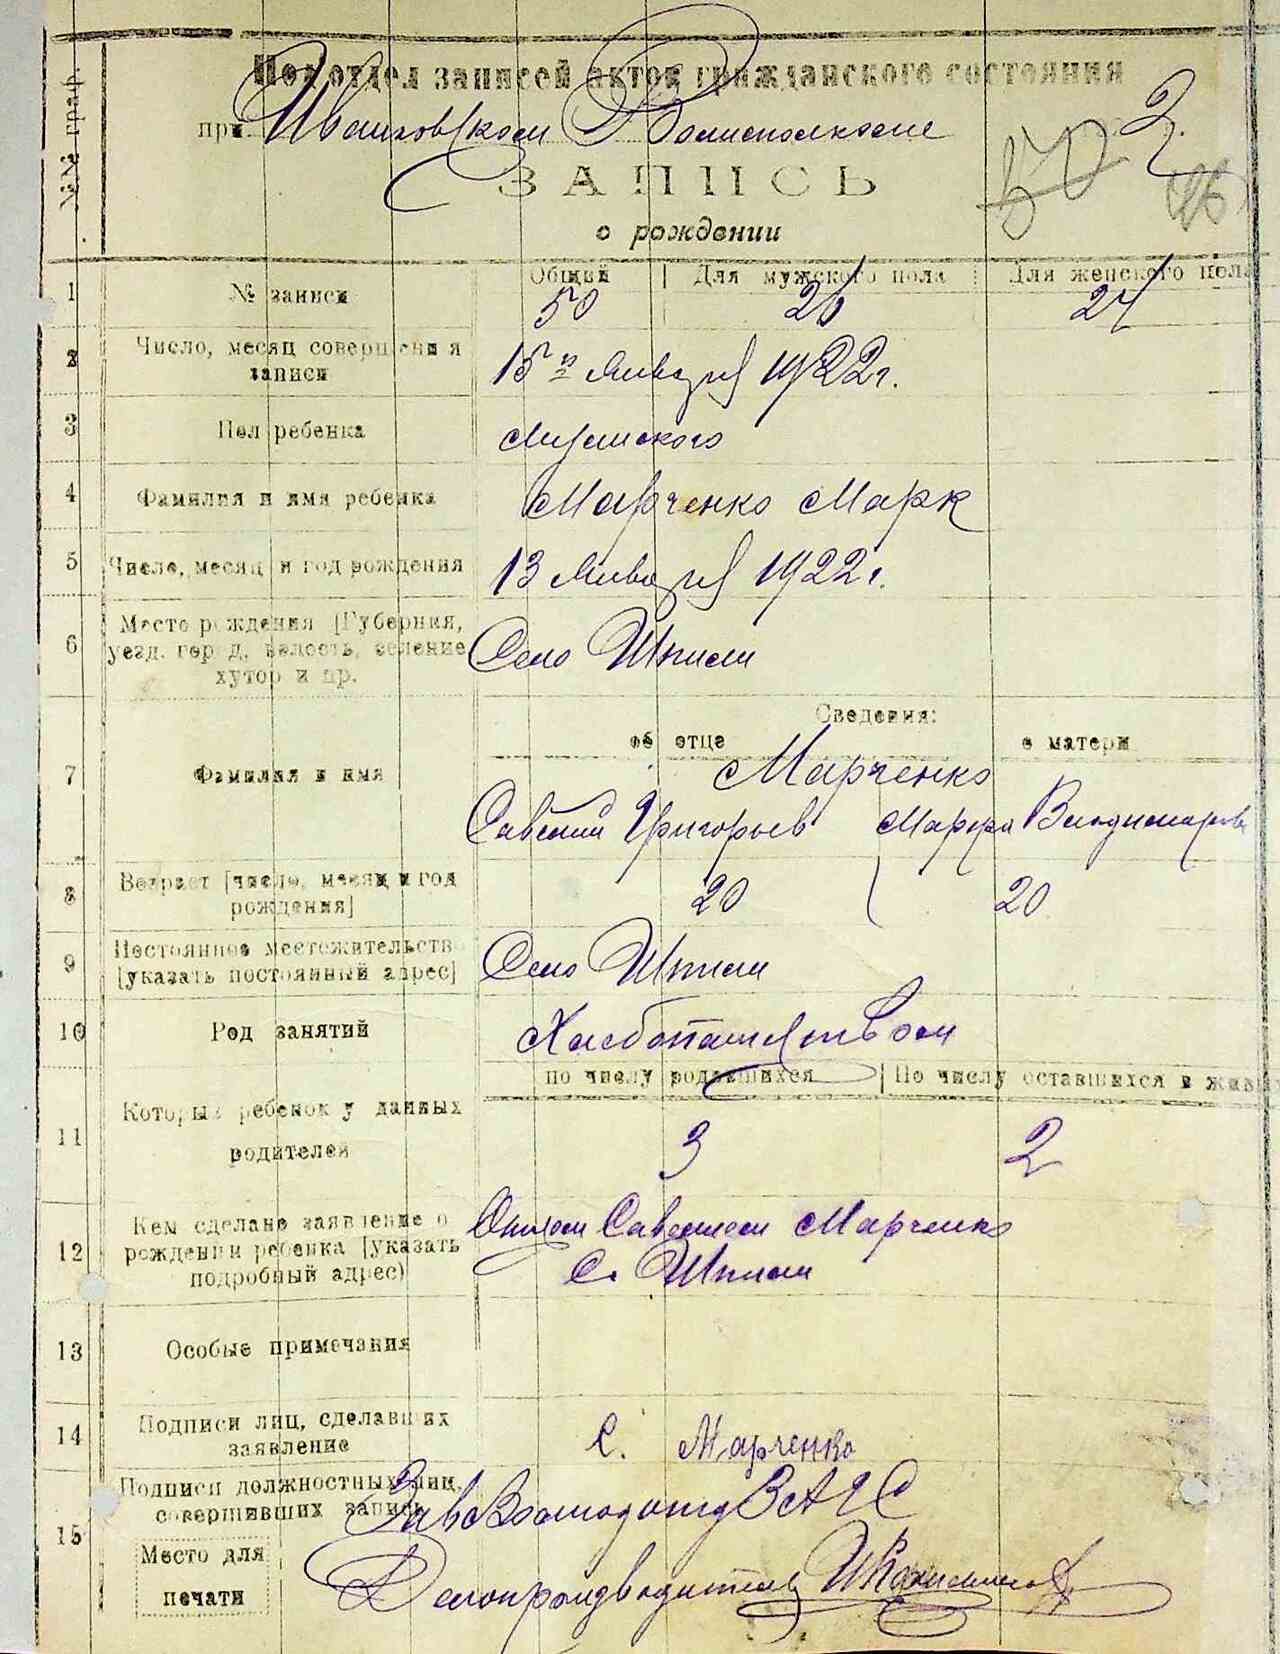 №№ граф.
Подотдел записей актов гражданского состояния
при Ивашковском Р. Волисполкоме
2.
50
26
ЗАПИСЬ
о рождении
1 № записи Общий 50 Для мужского пола 26 Для женского пола 24
2 Число, месяц совершения записи 15го Января 1922г.
3 Пол ребенка Мужского
4 Фамилия и имя ребенка Марченко Марк
5 Число, месяц и год рождения 13 Января 1922г.
6 Место рождения [Губерния,
уезд, город, волость, селение
хутор и пр. Село Шпили
Сведения:
об отце о матери
7 Фамилия и имя Марченко
Савелий Григорьев Марфа Владимиров
8 Возраст [число, месяц и год
рождения] 20 20
9 Постоянное местожительство
[указать постоянный адрес] Село Шпили
10 Род занятий Хлебопашеством
по числу родившихся По числу оставшихся в живых
11 Который ребенок у данных
родителей 3 2
12 Кем сделано заявление о
рождении ребенка [указать
подробный адрес) Отцом Савелием Марченко
С. Шпили
13 Особые примечания
14 Подписи лиц, сделавших
заявление С. Марченко
15 Подписи должностных лиц,
совершивших запись Зав. ЗАГС
Место для
печати Делопроизводитель